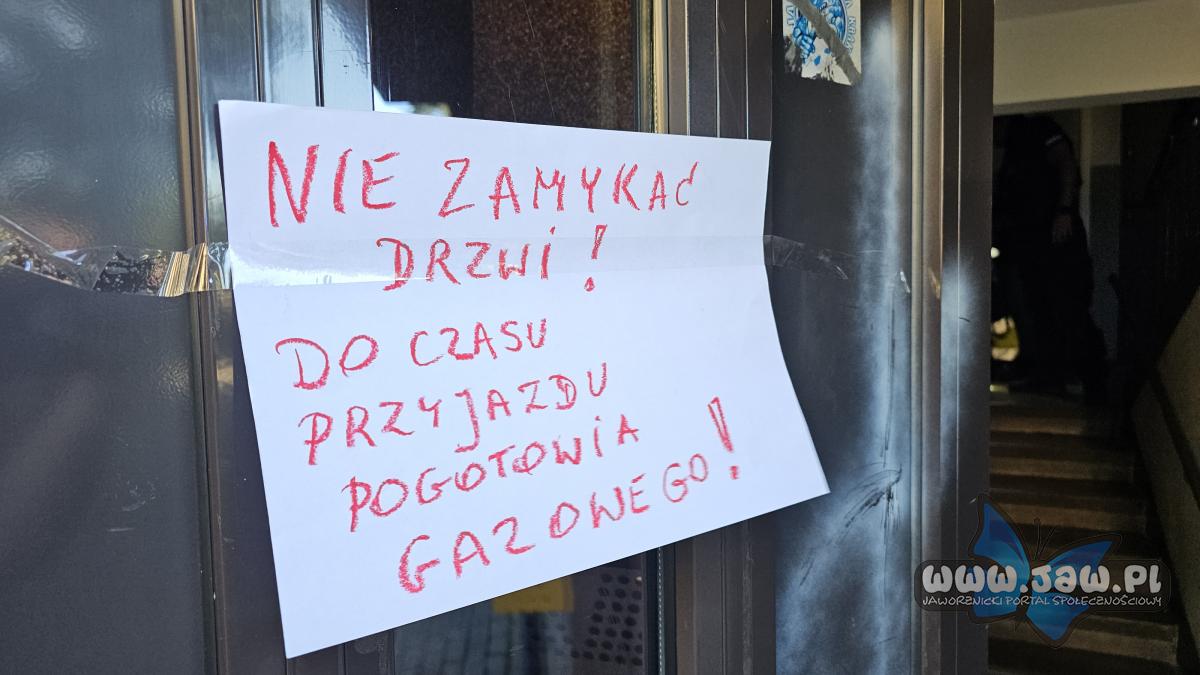 NIE ZAMYKAĆ
DRZWI!
DO CZASU
PRZYJAZDU
POGOTOWIA
GAZOWEGO!
www.JAW.PL
JAWORZNICKI PORTAL SPOŁECZNOŚCIOWY